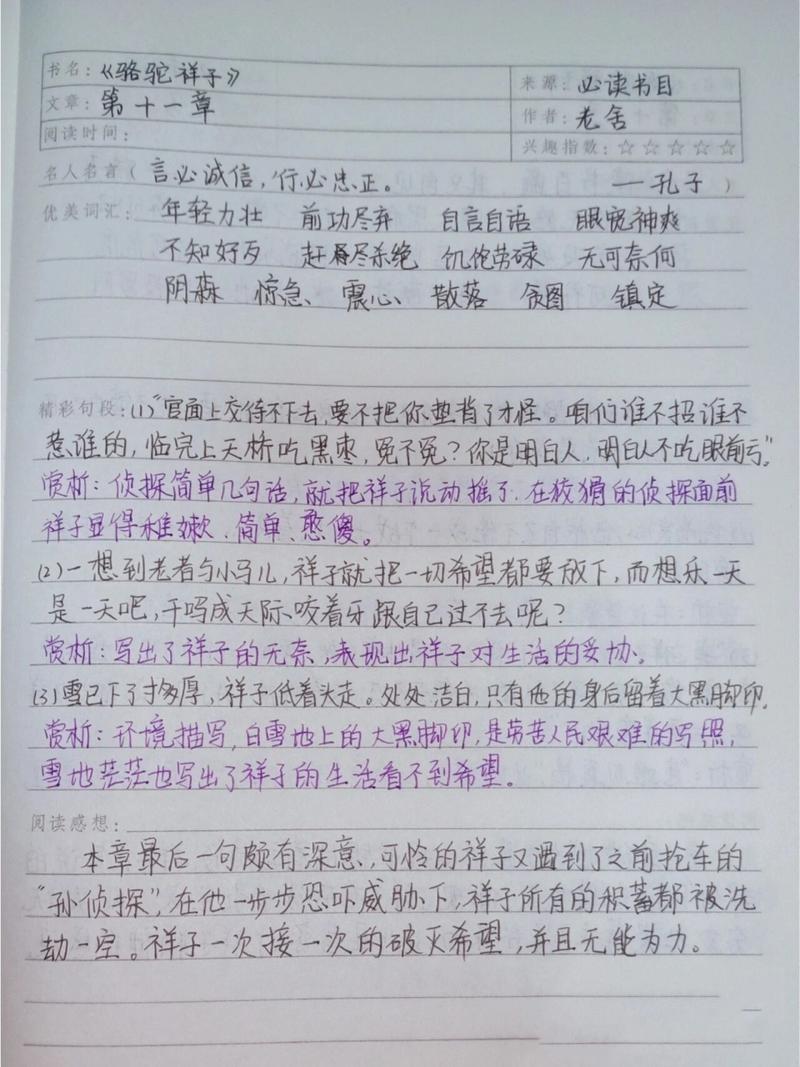 书名：《骆驼祥子》
来源：必读书目
文章：第十一章
作者：老舍
阅读时间：
兴趣指数：☆☆☆☆☆
名人名言（言必诚信，行必忠正。——孔子）
优美词汇：年轻力壮 前功尽弃 自言自语 眼宽神爽
不知好歹 赶尽杀绝 饥饱劳碌 无可奈何
阴森 惊急 震心 散落 贪图 镇定
精彩句段：(1)“官面上交待不下去，要不把你垫背了才怪。咱们谁不招谁不
惹谁的，临完上天桥吃黑枣，冤不冤？你是明白人，明白人不吃眼前亏。”
赏析：侦探简单几句话，就把祥子说动摇了，在狡猾的侦探面前
祥子显得稚嫩、简单、憨傻。
(2)一想到老者与小马儿，祥子就把一切希望都要放下，而想乐一天
是一天吧，干吗成天际咬着牙跟自己过不去呢？
赏析：写出了祥子的无奈，表现出祥子对生活的妥协。
(3)雪已下了寸多厚，祥子低着头走。处处洁白，只有他的身后留着大黑脚印。
赏析：环境描写，白雪地上的大黑脚印，是劳苦人民艰难的写照，
雪地茫茫也写出了祥子的生活看不到希望。
阅读感想：
本章最后一句颇有深意，可怜的祥子又遇到了之前抢车的
“孙侦探”，在他一步步恐吓威胁下，祥子所有的积蓄都被洗
劫一空。祥子一次接一次的破灭希望，并且无能为力。